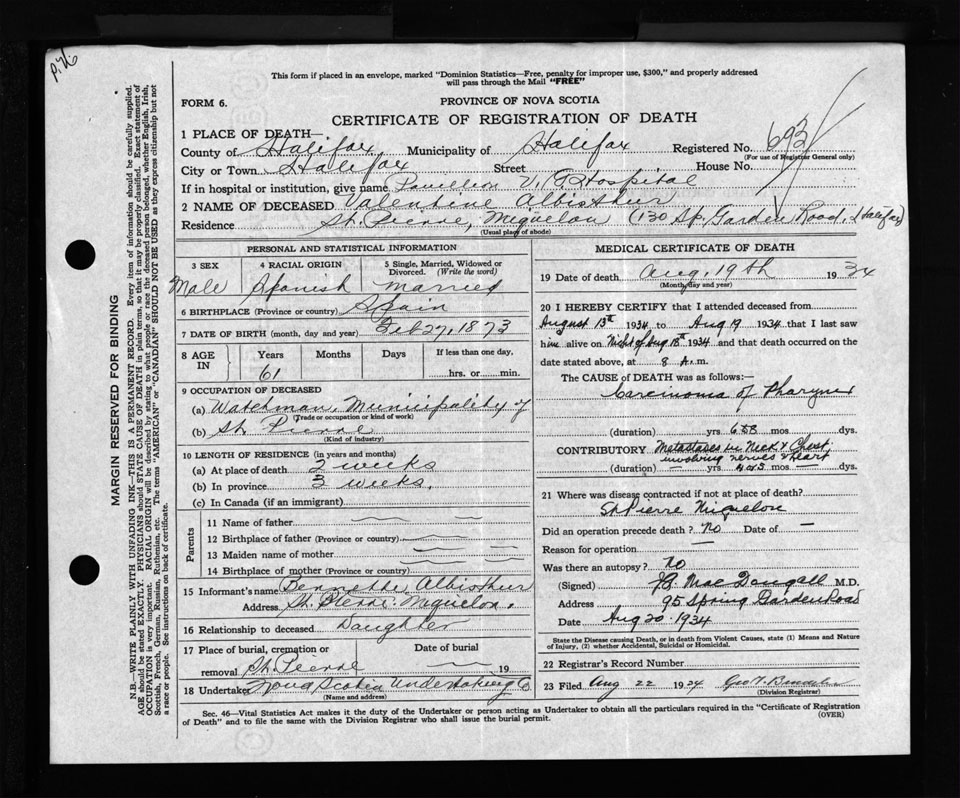 P.46
This form if placed in an envelope, marked "Dominion Statistics—Free, penalty for improper use, $300," and properly addressed
will pass through the Mail "FREE"
FORM 6.
PROVINCE OF NOVA SCOTIA
CERTIFICATE OF REGISTRATION OF DEATH
1 PLACE OF DEATH—
County of Halifax, Municipality of Halifax Registered No. 693
(For use of Registrar General only)
City or Town Halifax Street House No.
If in hospital or institution, give name Pavillion V.G. Hospital
2 NAME OF DECEASED Valentine Albisthur
Residence St. Pierre, Miquelon (130 Sp. Garden Road, Halifax)
(Usual place of abode)
PERSONAL AND STATISTICAL INFORMATION
3 SEX 4 RACIAL ORIGIN 5 Single, Married, Widowed or Divorced. (Write the word)
Male Spanish Married
6 BIRTHPLACE (Province or country) Spain
7 DATE OF BIRTH (month, day and year) Feb 27, 1873
8 AGE IN Years Months Days If less than one day,
61 hrs. or min.
9 OCCUPATION OF DECEASED
(a) Watchman, Municipality of
(Trade or occupation or kind of work)
(b) St. Pierre
(Kind of industry)
10 LENGTH OF RESIDENCE (in years and months)
(a) At place of death 2 weeks
(b) In province 3 weeks,
(c) In Canada (if an immigrant)
Parents
11 Name of father
12 Birthplace of father (Province or country)
13 Maiden name of mother
14 Birthplace of mother (Province or country)
15 Informant's name Albisthur
Address St. Pierre Miquelon.
16 Relationship to deceased Daughter
17 Place of burial, cremation or removal St. Pierre Date of burial 19
18 Undertaker Nova Scotia Undertaking Co
(Name and address)
MEDICAL CERTIFICATE OF DEATH
19 Date of death Aug. 19th 1934
(Month, day and year)
20 I HEREBY CERTIFY that I attended deceased from
August 13th 1934 to Aug 19 1934 that I last saw
him alive on Night of Aug. 18th 1934 and that death occurred on the
date stated above, at 8 A.m.
The CAUSE of DEATH was as follows:—
Carcinoma of Pharynx
(duration) — yrs mos — dys.
CONTRIBUTORY Metastases in Neck & Chest
involving nerves & heart
(duration) — yrs mos — dys.
21 Where was disease contracted if not at place of death?
St Pierre Miquelon
Did an operation precede death? No Date of —
Reason for operation —
Was there an autopsy? No
(Signed) Mac Dougall M.D.
Address 95 Spring Garden Road
Date Aug 20. 1934
State the Disease causing Death, or in death from Violent Causes, state (1) Means and Nature of Injury, (2) whether Accidental, Suicidal or Homicidal.
22 Registrar's Record Number
23 Filed Aug 22 1934 Geo
(Division Registrar)
Sec. 46—Vital Statistics Act makes it the duty of the Undertaker or person acting as Undertaker to obtain all the particulars required in the "Certificate of Registration
of Death" and to file the same with the Division Registrar who shall issue the burial permit. (OVER)
MARGIN RESERVED FOR BINDING
N.B.—WRITE PLAINLY WITH UNFADING INK—THIS IS A PERMANENT RECORD. Every item of information should be carefully supplied.
AGE should be stated EXACTLY. PHYSICIANS should STATE CAUSE OF DEATH in plain terms, so that it may be properly classified. Exact statement of
OCCUPATION is very important. RACIAL ORIGIN will be described by stating to what people or race the deceased person belonged, whether English, Irish,
Scottish, French, German, Russian, Ruthenian, etc. The terms "AMERICAN" or "CANADIAN" SHOULD NOT BE USED as they express citizenship but not
a race or people. See instructions on back of certificate.